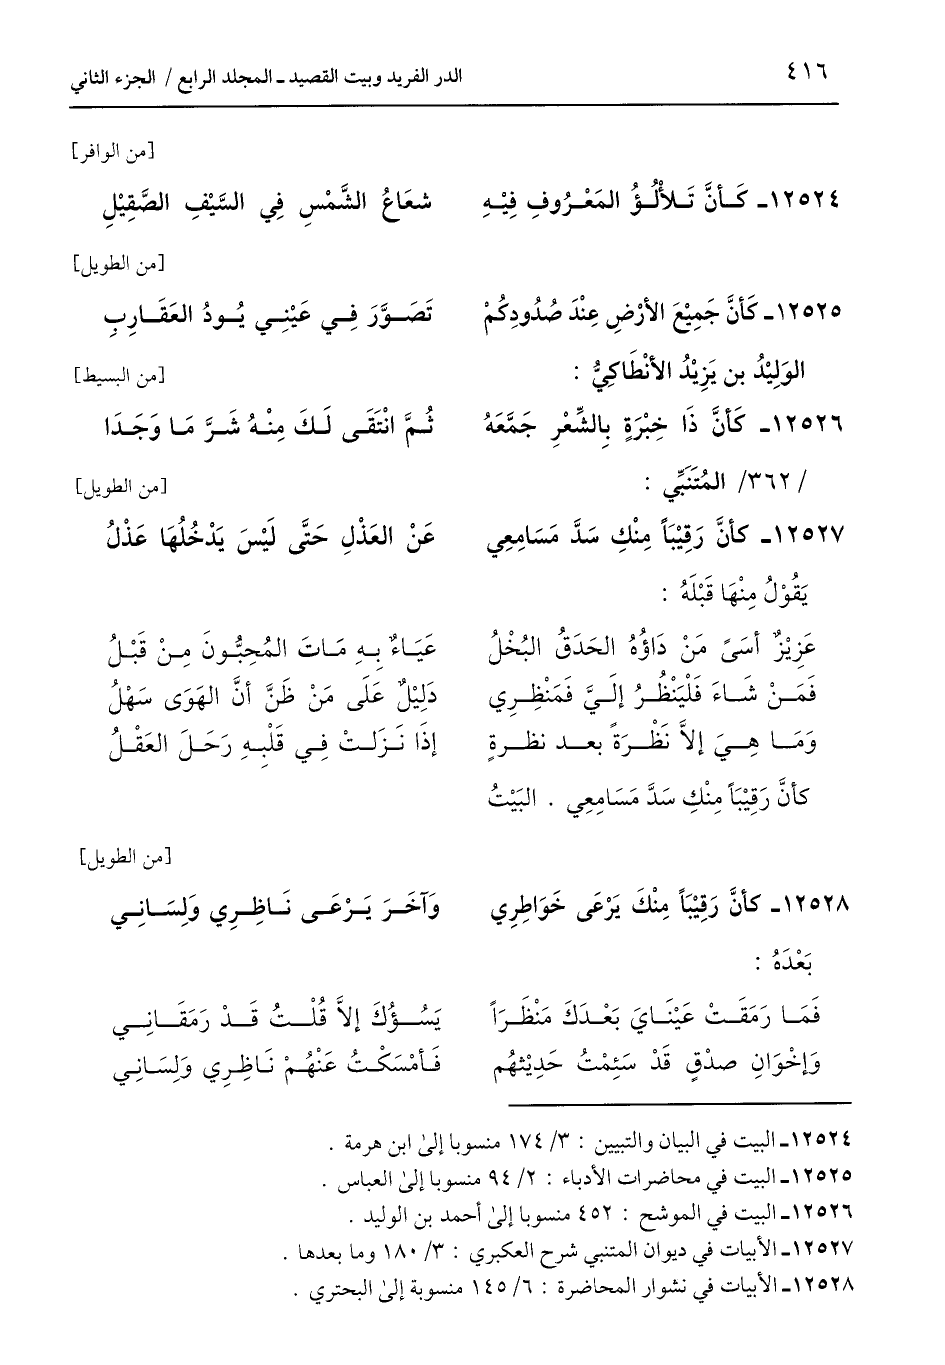 ٤١٦ الدر الفريد وبيت القصيد ـ المجلد الرابع / الجزء الثاني
[من الوافر]
١٢٥٢٤ـ كَــأنَّ تَــلألُــؤُ المَعْــرُوفِ فِيْــهِ شعَاعُ الشَّمْسِ فِي السَّيْفِ الصَّقِيْلِ
[من الطويل]
١٢٥٢٥ـ كَأنَّ جَمِيْعَ الأرْضِ عِنْدَ صُدُودِكُمْ تَصَــوَّرَ فِــي عَيْنِــي يُــودُ العَقَــارِبِ
الوَلِيْدُ بن يَزِيْدُ الأنْطَاكِيُّ : [من البسيط]
١٢٥٢٦ـ كَأنَّ ذَا خِبْرَةٍ بِالشِّعْرِ جَمَّعَهُ ثُمَّ انْتَقَى لَكَ مِنْهُ شَرَّ مَا وَجَدَا
/ ٣٦٢/ المُتَنَبِّي : [من الطويل]
١٢٥٢٧ـ كأنَّ رَقِيْبَاً مِنْكِ سَدَّ مَسَامِعِي عَنْ العَذْلِ حَتَّى لَيْسَ يَدْخُلُهَا عَذْلُ
يَقُوْلُ مِنْهَا قَبْلَهُ :
عَزِيْزٌ أسَىً مَنْ دَاؤُهُ الحَدَقُ البُخْلُ عَيَــاءٌ بِــهِ مَــاتَ المُحِبُّــونَ مِــنْ قَبْــلُ
فَمَــنْ شَــاءَ فَلْيَنْظُــرُ إلَــيَّ فَمَنْظِــرِي دَلِيْلٌ عَلَى مَنْ ظَنَّ أنَّ الهَوَى سَهْلُ
وَمَــا هِــيَ إلاَّ نَظْــرَةً بعــد نظــرةٍ إذَا نَــزَلَــتْ فِــي قَلْبِــهِ رَحَــلَ العَقْــلُ
كأنَّ رَقِيْبَاً مِنْكِ سَدَّ مَسَامِعِي . البَيْتُ
[من الطويل]
١٢٥٢٨ـ كأنَّ رَقِيْبَاً مِنْكَ يَرْعَى خَوَاطِرِي وَآخَــرَ يَــرْعَــى نَــاظِــرِي وَلِسَــانِــي
بَعْدَهُ :
فَمَــا رَمَقَــتْ عَيْنَــايَ بَعْــدَكَ مَنْظَــرَاً يَسُــؤُكَ إلاَّ قُلْــتُ قَــدْ رَمَقَــانِــي
وَإخْوَانِ صدْقٍ قَدْ سَئِمْتُ حَدِيْثهُم فَأمْسَكْتُ عَنْهُمْ نَاظِرِي وَلِسَانِي
١٢٥٢٤ـ البيت في البيان والتبيين : ٣/ ١٧٤ منسوبا إلىٰ ابن هرمة .
١٢٥٢٥ـ البيت في محاضرات الأدباء : ٢/ ٩٤ منسوبا إلىٰ العباس .
١٢٥٢٦ـ البيت في الموشح : ٤٥٢ منسوبا إلىٰ أحمد بن الوليد .
١٢٥٢٧ـ الأبيات في ديوان المتنبي شرح العكبري : ٣/ ١٨٠ وما بعدها .
١٢٥٢٨ـ الأبيات في نشوار المحاضرة : ٦/ ١٤٥ منسوبة إلىٰ البحتري .